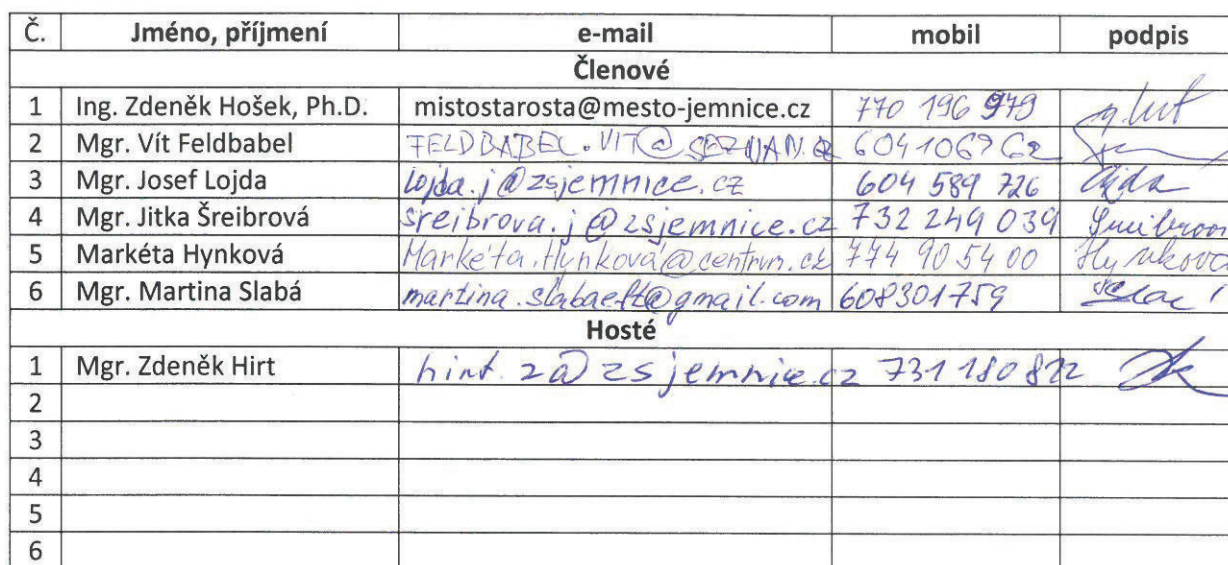 Č. Jméno, příjmení e-mail mobil podpis
Členové
1 Ing. Zdeněk Hošek, Ph.D. mistostarosta@mesto-jemnice.cz 770 196 979
2 Mgr. Vít Feldbabel FELDBABEL.VIT@SEZNAM.CZ 604106762
3 Mgr. Josef Lojda lojda.j@zsjemnice.cz 604 589 726 Lojda
4 Mgr. Jitka Šreibrová sreibrova.j@zsjemnice.cz 732 249 039
5 Markéta Hynková Markéta.Hynková@centrum.cz 774 90 54 00 Hynková
6 Mgr. Martina Slabá martina.slabaeft@gmail.com 608301759
Hosté
1 Mgr. Zdeněk Hirt hirt.z@zsjemnice.cz 731 180 822
2
3
4
5
6